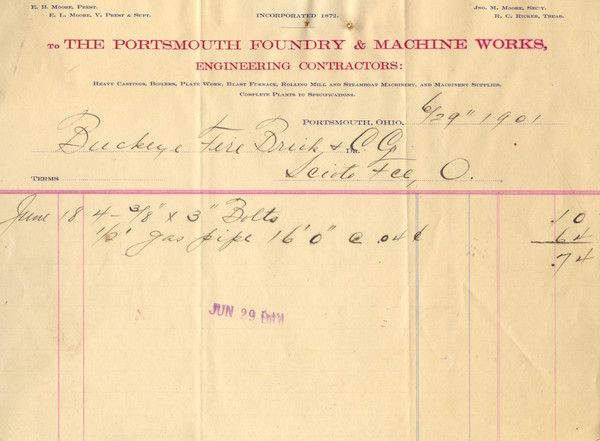 E. B. Moore, Prest.
E. L. Moore, V. Prest & Supt.
INCORPORATED 1872.
Jno. M. Moore, Sec'y.
R. C. Ricker, Treas.
TO THE PORTSMOUTH FOUNDRY & MACHINE WORKS,
ENGINEERING CONTRACTORS:
Heavy Castings, Boilers, Plate Work, Blast Furnace, Rolling Mill and Steamboat Machinery, and Machinery Supplies.
Complete Plants to Specifications.
Portsmouth, Ohio, 6/29" 1901
Buckeye Fire Brick & C. Co Dr.
Scioto Fce, O.
Terms
June 18 4- 3/8" x 3" Bolts 10
1/2" gas pipe 16'0" @ .04¢ 64
.74
JUN 29